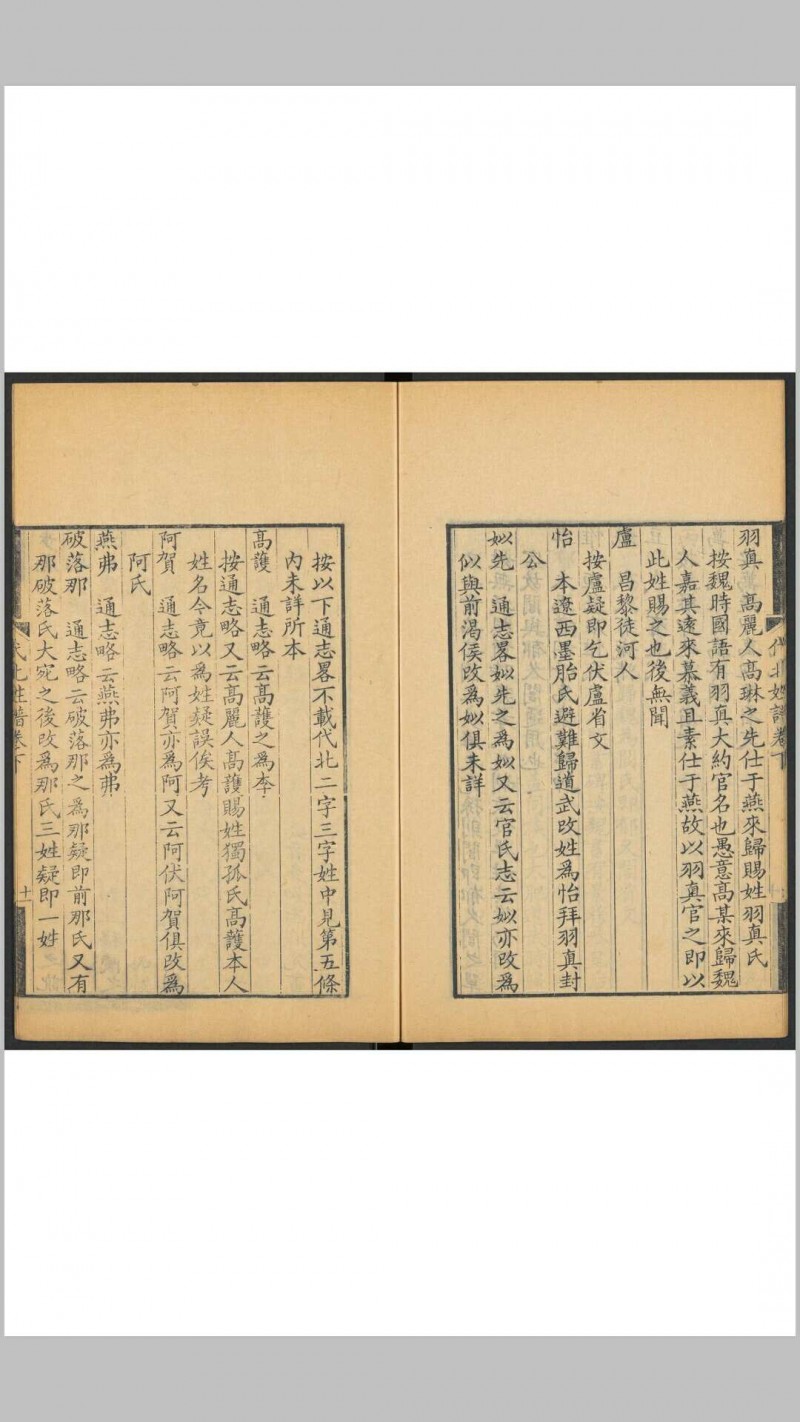 羽真　高麗人高琳之先仕于燕來歸賜姓羽真氏
按魏時國語有羽真大約官名也愚意高某來歸魏
人嘉其遠來慕義且素仕于燕故以羽真官之即以
此姓賜之也後無聞
盧　昌黎徒河人
按盧疑即乞伏盧省文
怡　本遼西墨胎氏避難歸道武改姓爲怡拜羽真封
公
姒先　通志畧姒先之爲姒又云官氏志云姒亦改爲
似與前渴侯改爲姒俱未詳
代北姓譜卷下
按以下通志畧不載代北二字三字姓中見第五條
内未詳所本
高護　通志略云高護之爲李
按通志略又云高麗人高護賜姓獨孤氏高護本人
姓名今竟以爲姓疑誤俟考
阿賀　通志略云阿賀亦爲阿又云阿伏阿賀俱改爲
阿氏
燕弗　通志略云燕弗亦爲弗
破落那　通志略云破落那之爲那疑即前那氏又有
那破落氏大宛之後改爲那氏三姓疑即一姓
代北姓譜卷下
十一